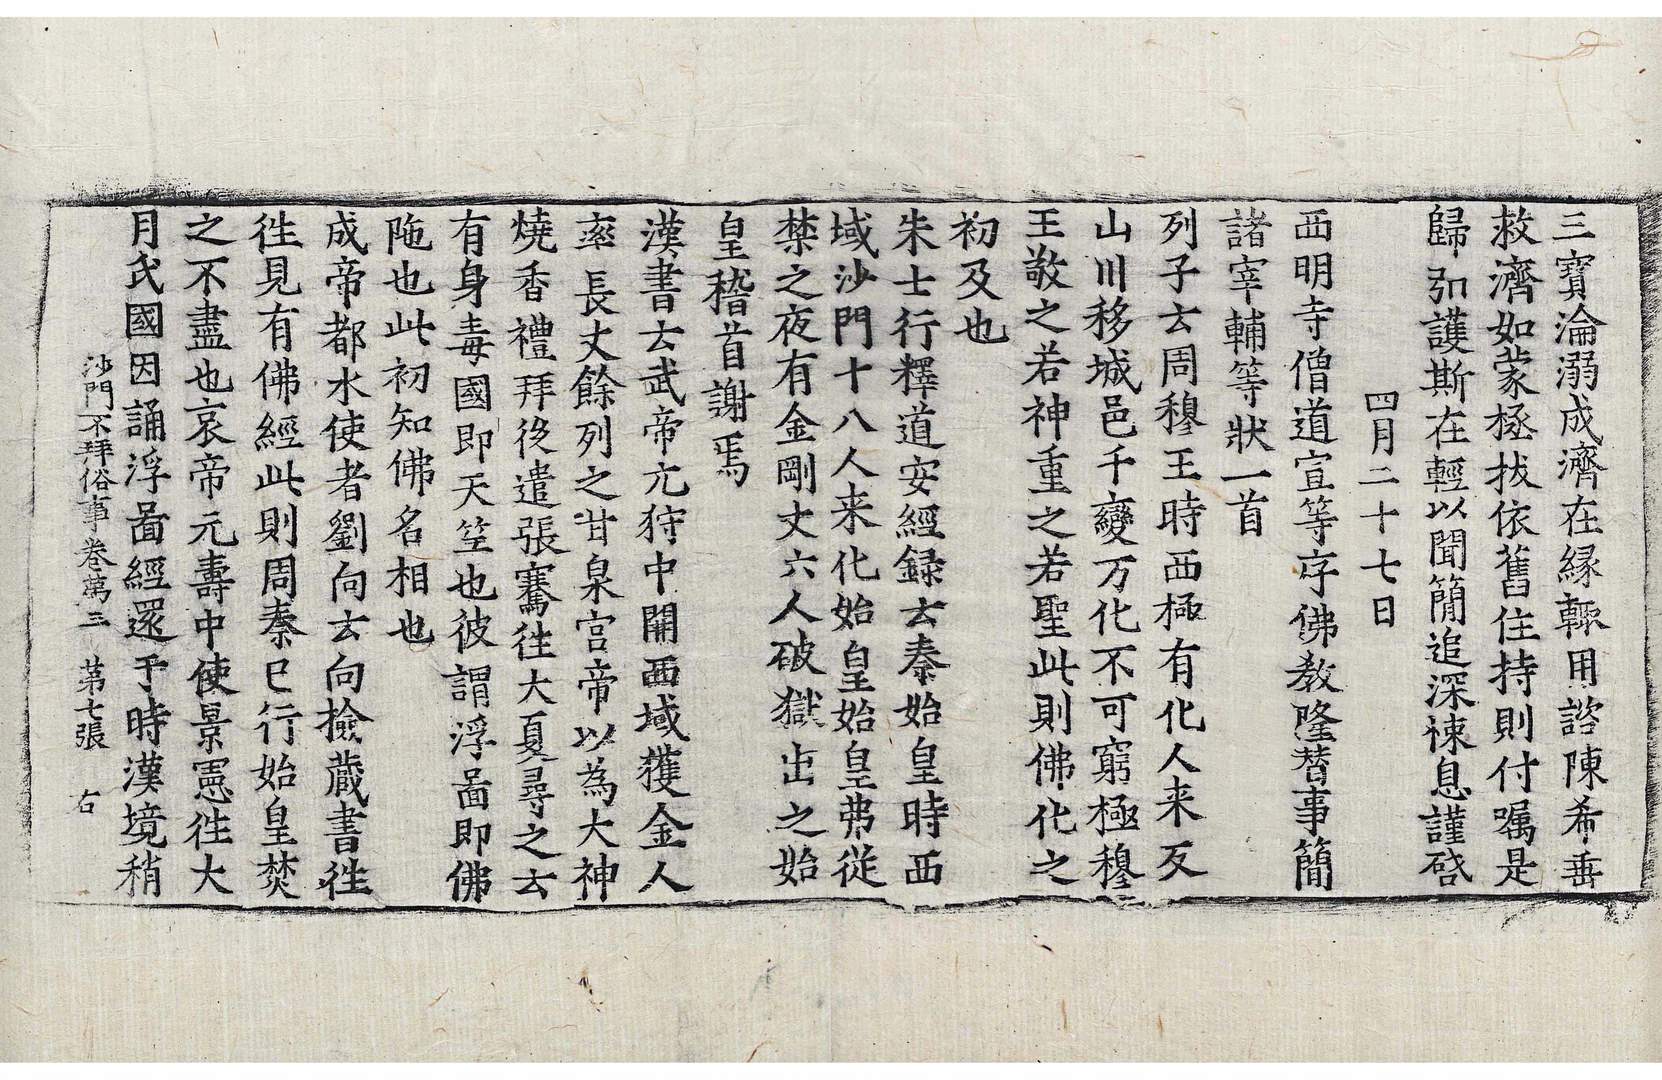 三寶淪溺成濟在縁輙用諮陳希垂
救濟如蒙拯拔依舊住持則付囑是
歸弘護斯在輕以聞簡追深悚息謹啓
四月二十七日
西明寺僧道宣等序佛教隆替事簡
諸宰輔等狀一首
列子云周穆王時西極有化人来反
山川移城邑千變万化不可窮極穆
王敬之若神重之若聖此則佛化之
初及也
朱士行釋道安經録云秦始皇時西
域沙門十八人来化始皇始皇弗從
禁之夜有金剛丈六人破獄出之始
皇稽首謝焉
漢書云武帝元狩中開西域獲金人
率長丈餘列之甘泉宫帝以為大神
燒香禮拜後遣張騫往大夏尋之云
有身毒國即天竺也彼謂浮啚即佛
陁也此初知佛名相也
成帝都水使者劉向云向撿藏書徃
徃見有佛經此則周秦已行始皇焚
之不盡也哀帝元壽中使景憲徃大
月氏國因誦浮啚經還于時漢境稍
沙門不拜俗事卷萬三 苐七張 右